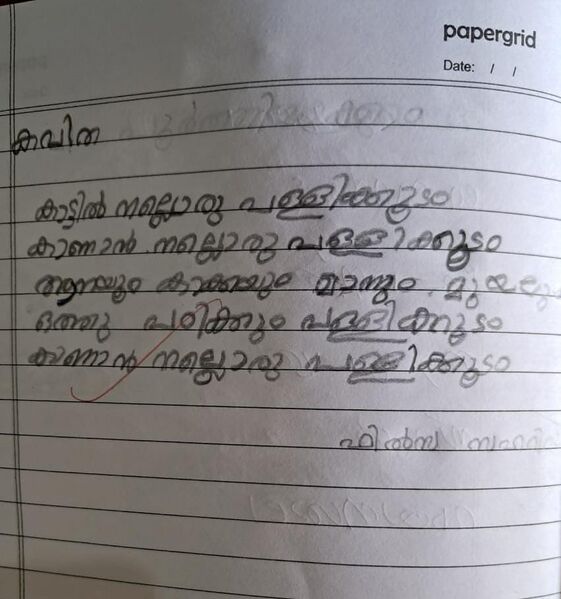 papergrid
Date: / /
കവിത
കാട്ടിൽ നല്ലൊരു പള്ളിക്കൂടം
കാണാൻ നല്ലൊരു പള്ളിക്കൂടം
ആനയും കാക്കയും മാനും മുയലും
ഒത്തു പഠിക്കും പള്ളിക്കൂടം
കാണാൻ നല്ലൊരു പള്ളിക്കൂടം